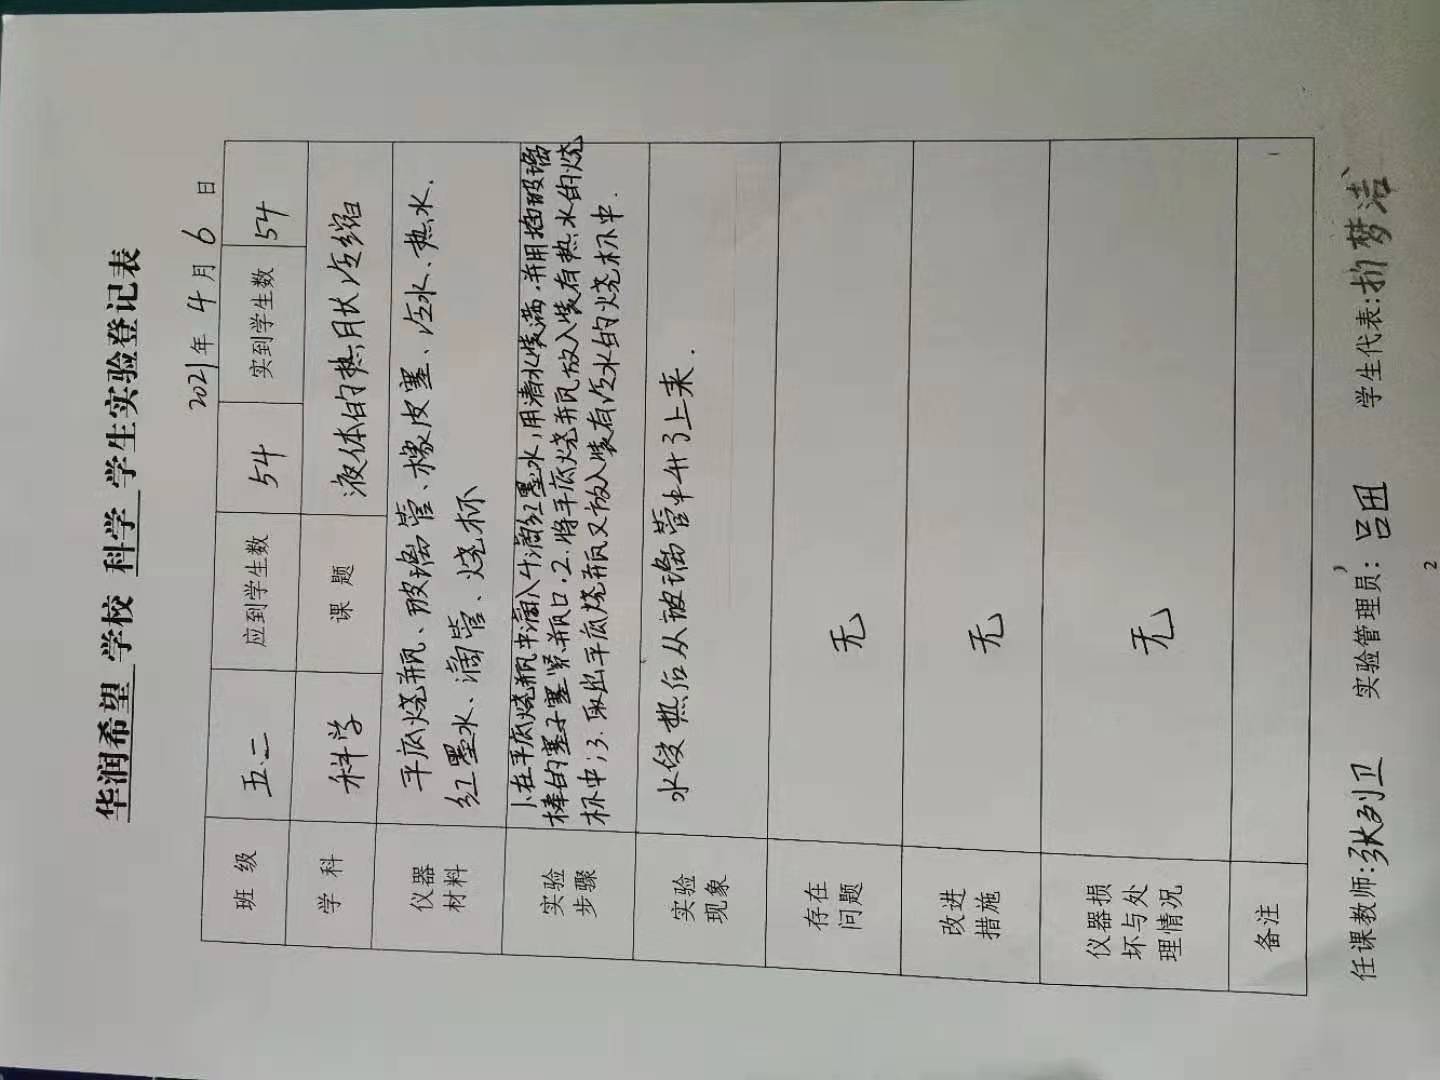 华润希望 学校 科学 学生实验登记表
2021年 4 月 6 日
班 级 五.二 应到学生数 54 实到学生数 54
学 科 科学 课 题 液体的热胀冷缩
仪器
材料
平底烧瓶、玻璃管、橡皮塞、冷水、热水.
红墨水、滴管、烧杯
实验
步骤
1.在平底烧瓶中滴入牛滴红墨水,用清水装满.并用插玻璃
棒的塞子塞紧瓶口.2.将平底烧瓶放入装有热水的烧
杯中;3.取出平底烧瓶又放入装有冷水的烧杯中.
实验
现象
水受热后从玻璃管中升了上来.
存在
问题
无
改进
措施
无
仪器损
坏与处
理情况
无
备注
任课教师:张列卫 实验管理员:吕田 学生代表:梦洁
2